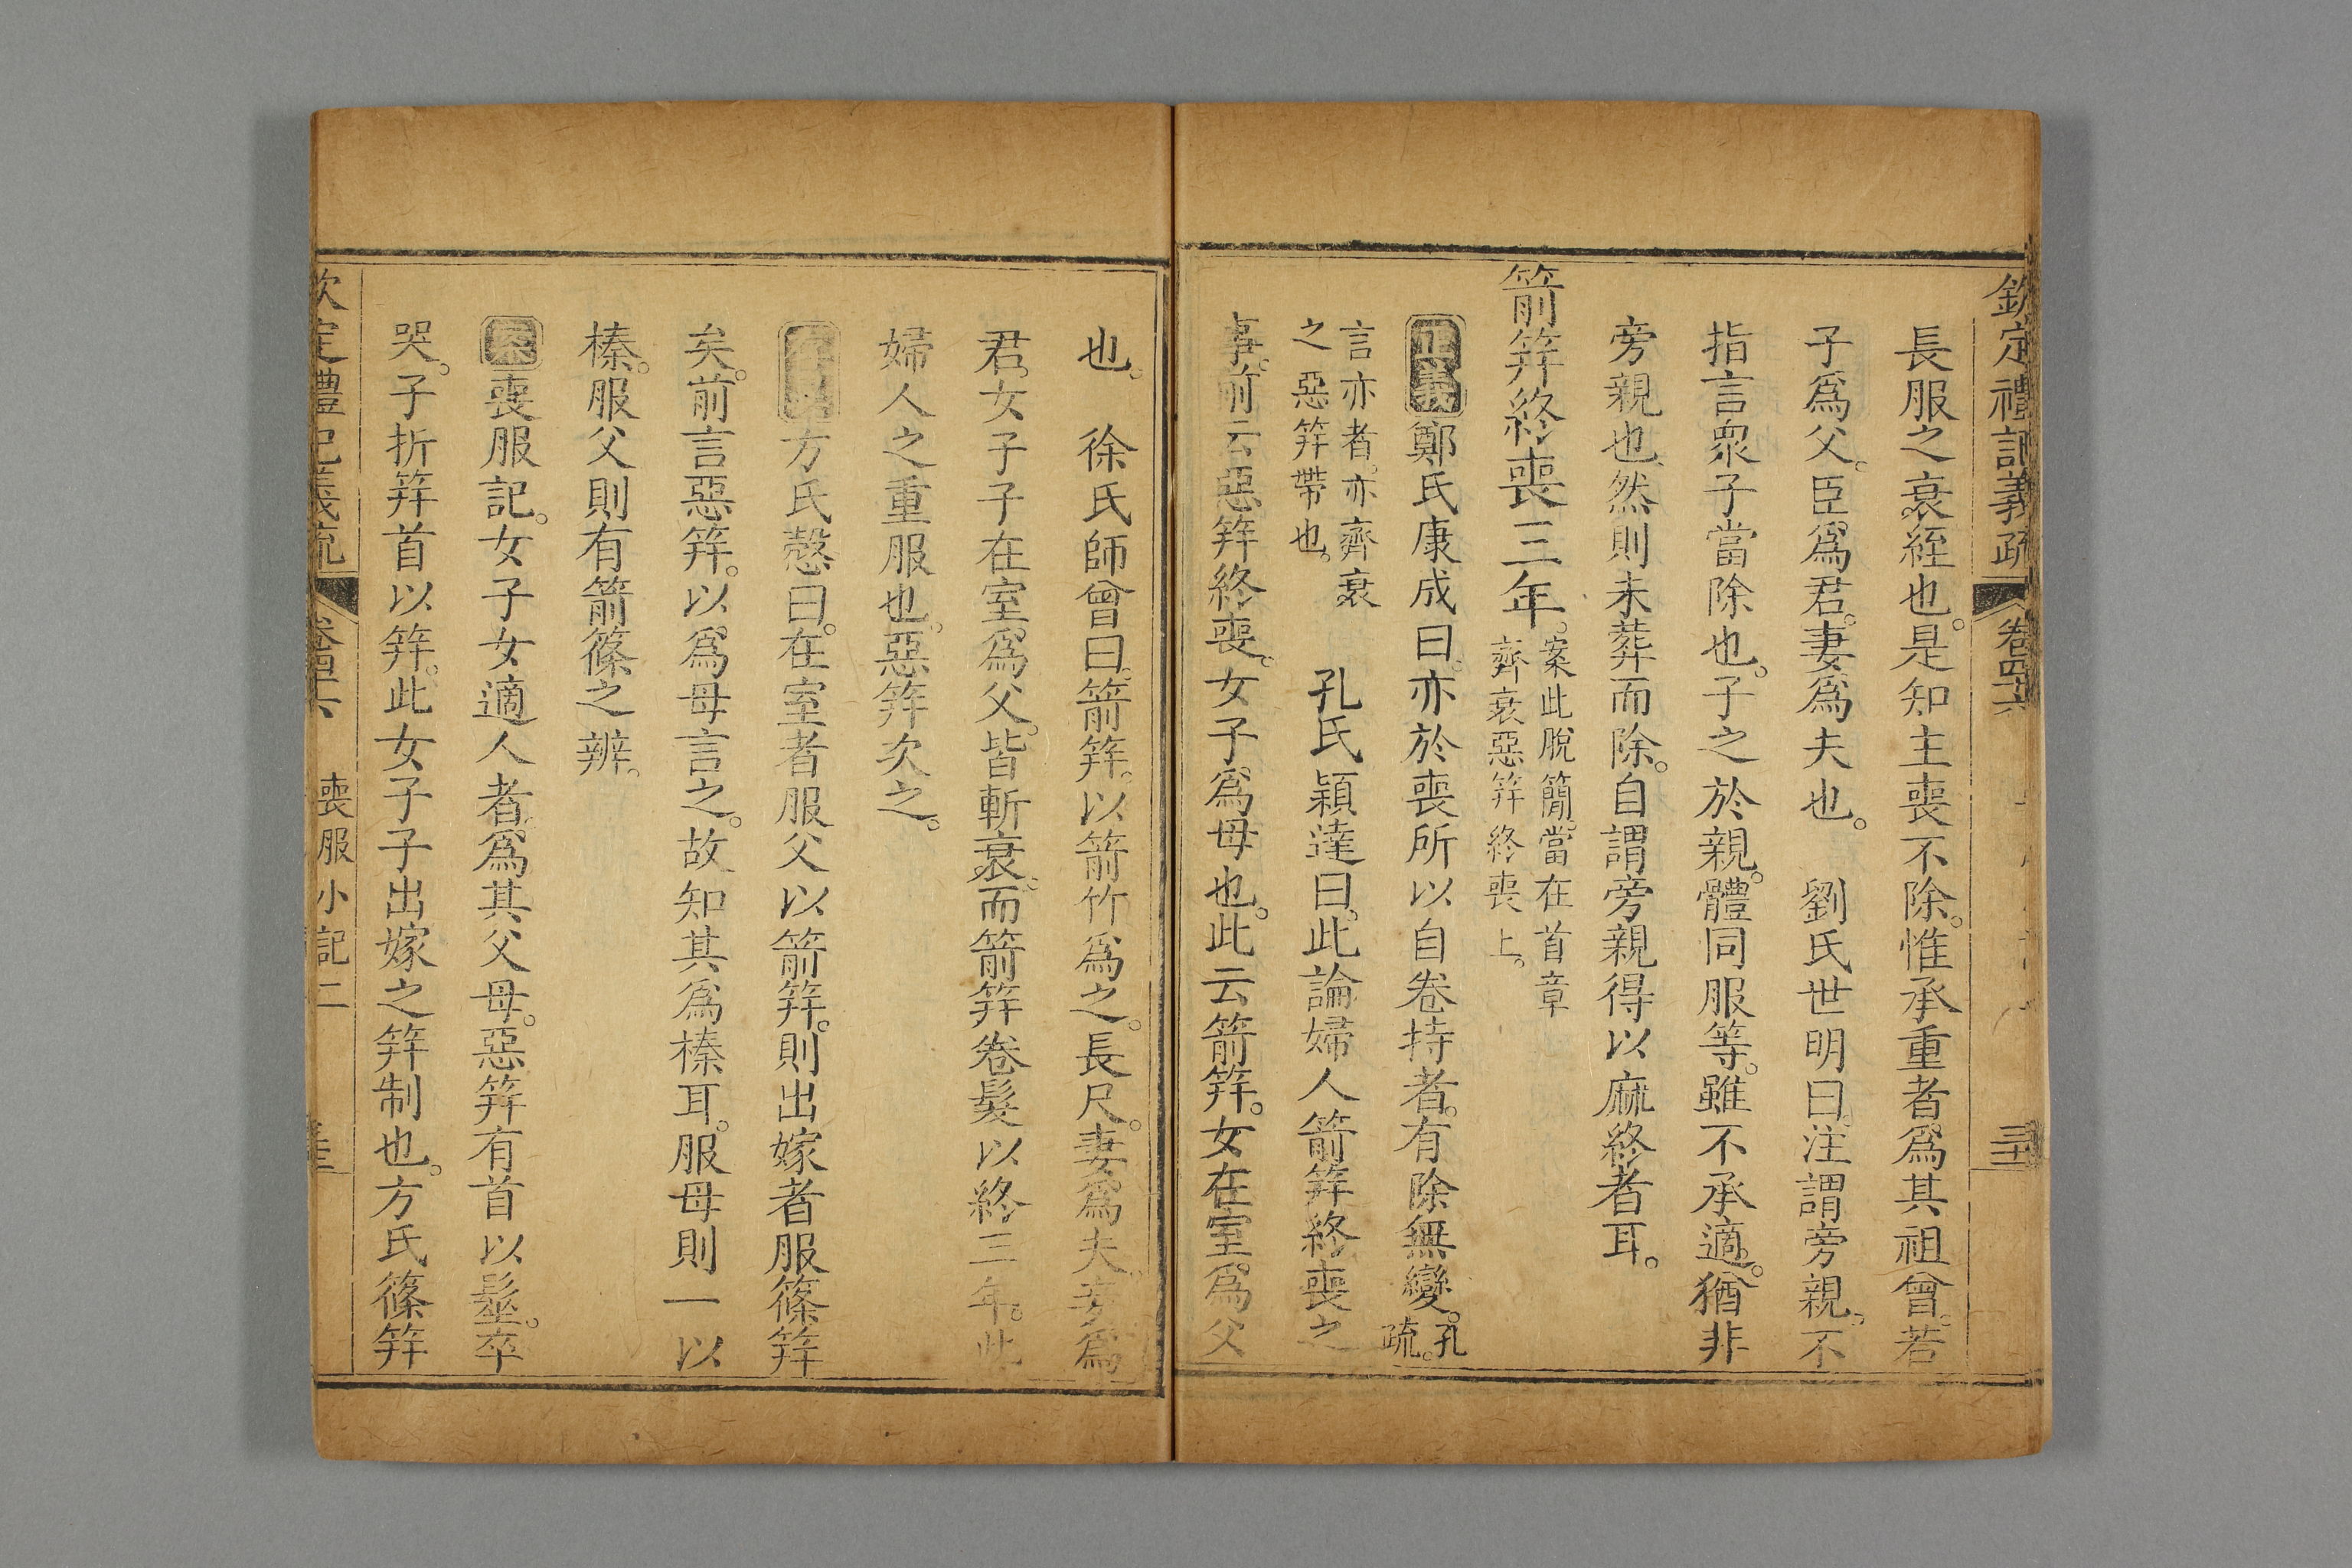 欽定禮記義疏 卷四十六
長服之衰絰也。是知主喪不除。惟承重者爲其祖曾。若
子爲父。臣爲君。妻爲夫也。 劉氏世明曰。注謂旁親。不
指言衆子當除也。子之於親。體同服等。雖不承適。猶非
旁親也。然則未葬而除。自謂旁親得以麻終者耳。
箭筓終喪三年。案此脫簡。當在首章
齊衰惡筓終喪上。
正義鄭氏康成曰。亦於喪所以自卷持者。有除無變。孔
疏。
言亦者。亦齊衰
之惡筓帶也。
孔氏穎達曰。此論婦人箭筓終喪之
事。前云惡筓終喪。女子爲母也。此云箭筓。女在室。爲父
也。 徐氏師曾曰。箭筓。以箭竹爲之。長尺。妻爲夫。妾爲
君。女子子在室。爲父。皆斬衰。而箭筓卷髮以終三年。此
婦人之重服也。惡筓次之。
方氏慤曰。在室者服父以箭筓。則出嫁者服篠筓
矣。前言惡筓。以爲母言之。故知其爲榛耳。服母則一以
榛。服父則有箭篠之辨。
案喪服記。女子女適人者。爲其父母。惡筓有首以髽。卒
哭。子折筓首以筓。此女子子出嫁之筓制也。方氏篠筓
欽定禮記義疏 卷四十六 喪服小記二